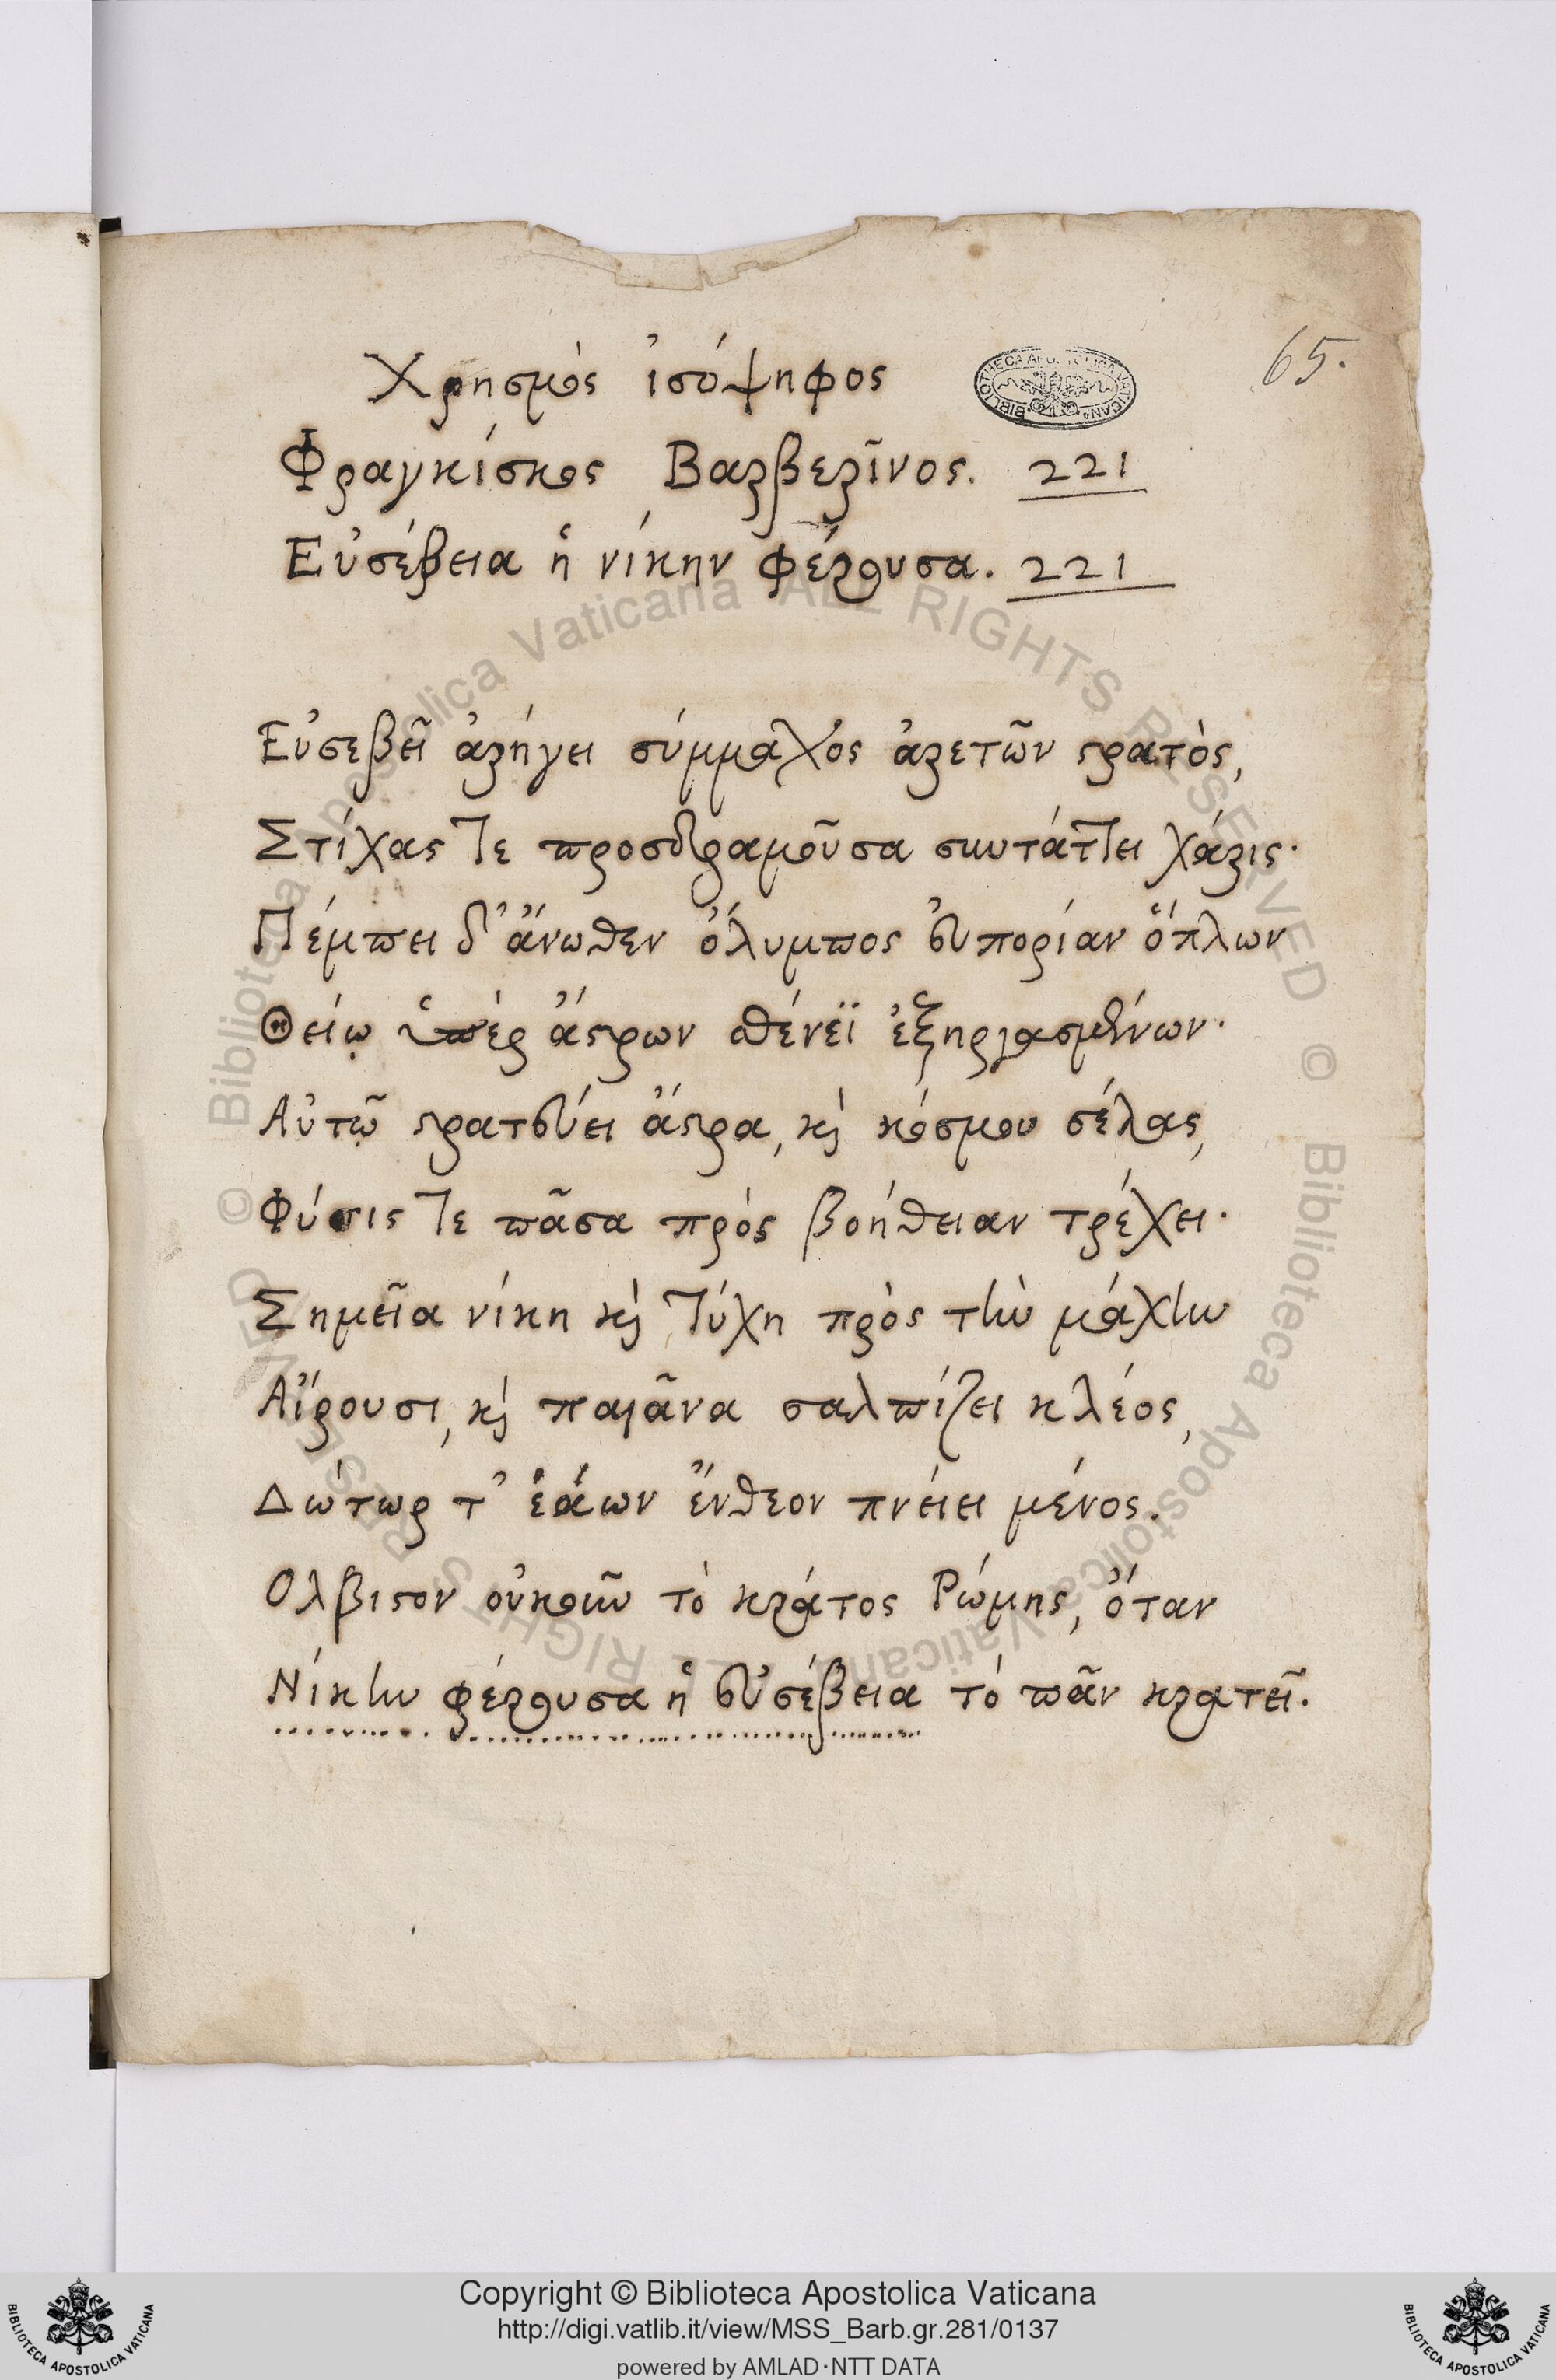 65.
Χρησμὸς ἰσόψηφος
Φραγκίσκος Βαρβερῖνος. 221
Εὐσέβεια ἡ νίκην φέρουσα. 221
Εὐσεβεῖ ἀρήγει σύμμαχος ἀρετῶν στρατὸς,
Στίχας τε προσδραμοῦσα συντάττει χάρις·
Πέμπει δ' ἄνωθεν ὄλυμπος εὐπορίαν ὅπλων
Θείῳ ὑπὲρ ἄστρων σθένεϊ ἐξηργασμένων·
Αὐτῷ στρατεύει ἄστρα, καὶ κόσμου σέλας,
Φύσις τε πᾶσα πρὸς βοήθειαν τρέχει·
Σημεῖα νίκη καὶ τύχη πρὸς τὴν μάχην
Αἴρουσι, καὶ παιᾶνα σαλπίζει κλέος,
Δώτωρ τ' ἑάων ἔνθεον πνέιει μένος.
Ολβιστον οὐκοῦν τὸ κράτος Ρώμης, ὅταν
Νίκην φέρουσα ἡ εὐσέβεια τὸ πᾶν κρατεῖ.
BIBLIOTHECA APOSTOLICA VATICANA
© Biblioteca Apostolica Vaticana ALL RIGHTS RESERVED © Biblioteca Apostolica Vaticana ALL RIGHTS RESERVED
Copyright © Biblioteca Apostolica Vaticana
http://digi.vatlib.it/view/MSS_Barb.gr.281/0137
powered by AMLAD·NTT DATA
BIBLIOTECA APOSTOLICA VATICANA
BIBLIOTECA APOSTOLICA VATICANA